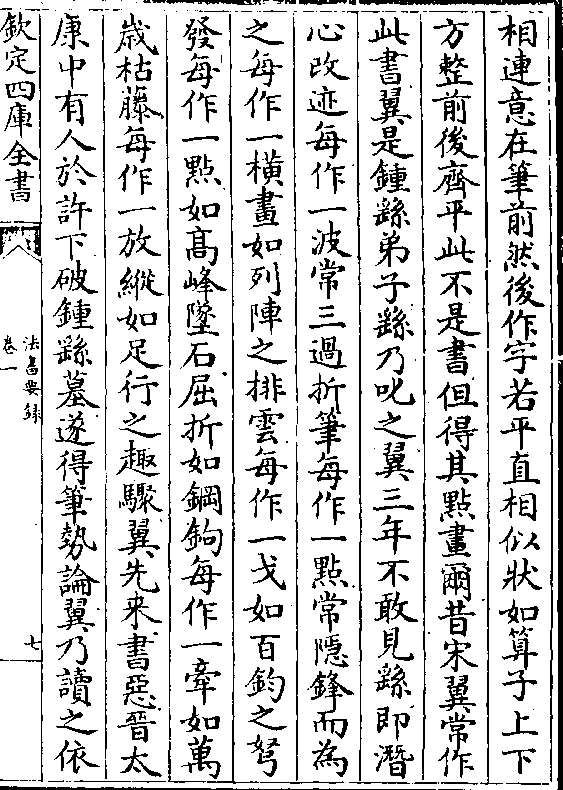 相連意在筆前然後作字若平直相似狀如算子上下
方整前後齊平此不是書但得其點畫爾昔宋翼常作
此書翼是鍾繇弟子繇乃叱之翼三年不敢見繇即潛
心改迹每作一波常三過折筆每作一點常隱鋒而為
之每作一橫畫如列陣之排雲每作一戈如百鈞之弩
發每作一點如髙峰墜石屈折如鋼鉤每作一牽如萬
歳枯藤每作一放縱如足行之趣驟翼先来書惡晉太
康中有人於許下破鍾繇墓遂得筆勢論翼乃讀之依
欽定四庫全書
法書要録
卷一
七